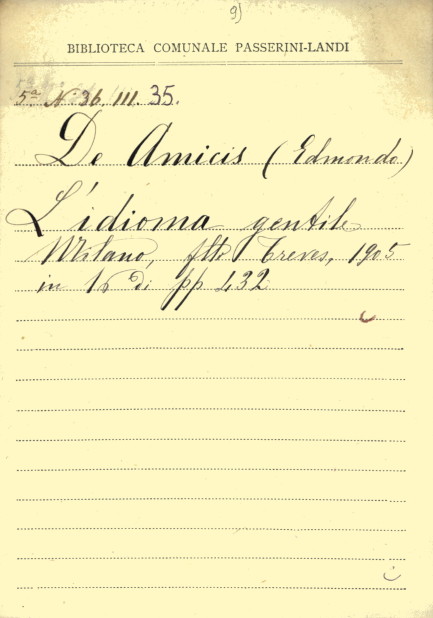 9)
BIBLIOTECA COMUNALE PASSERINI-LANDI
5ª N. 36. III. 35.
De Amicis (Edmondo)
L'idioma gentile
Milano, flli Treves, 1905
in 16 di pp 432